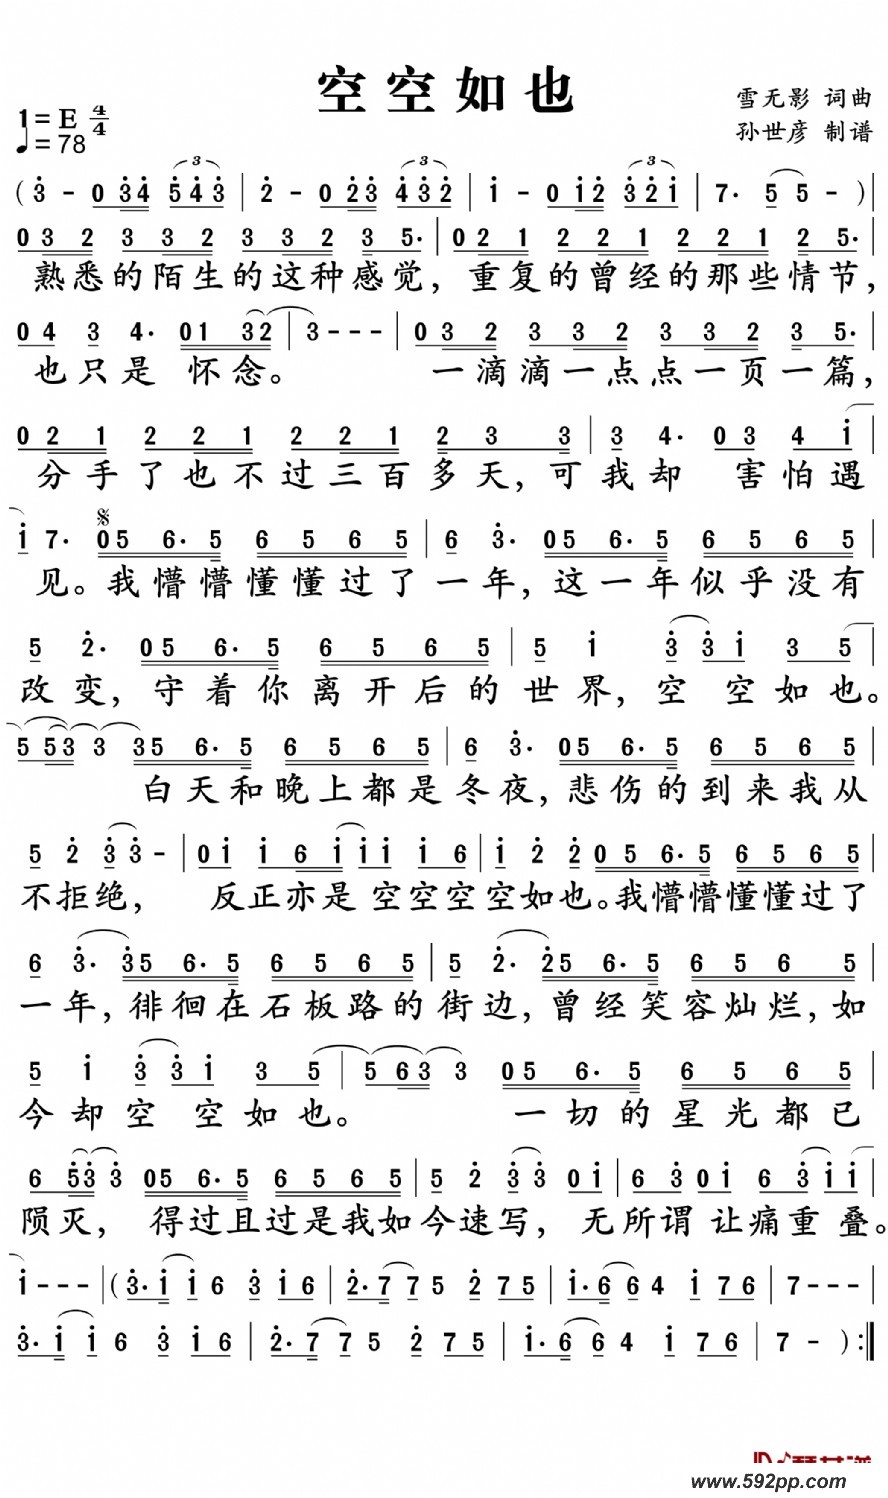 空空如也
雪无影 词曲
孙世彦 制谱
1=E 4/4
♩=78
(3̇ - 0 3̇4̇ 5̇4̇3̇ | 2̇ - 0 2̇3̇ 4̇3̇2̇ | i - 0 i2̇ 3̇2̇i | 7· 5 5 - )|
0 3 2 3 3 2 3 3 2 3 5· | 0 2 1 2 2 1 2 2 1 2 5· |
熟悉的陌生的这种感觉，重复的曾经的那些情节，
0 4 3 4· 0 1 3 2 | 3 - - - | 0 3 2 3 3 2 3 3 2 3 5· |
也只是怀念。 一滴滴一点点一页一篇，
0 2 1 2 2 1 2 2 1 2 3 3 | 3 4· 0 3 4 i
分手了也不过三百多天，可我却 害怕遇
i 7· 0 5 6· 5 6 5 6 5 | 6 3̇· 0 5 6· 5 6 5 6 5 |
见。我懵懵懂懂过了一年，这一年似乎没有
5 2̇· 0 5 6· 5 6 5 6 5 | 5 i 3̇ 3̇ i 3 5
改变，守着你离开后的世界，空 空如也。
5 5 3 3 3 5 6· 5 6 5 6 5 | 6 3̇· 0 5 6· 5 6 5 6 5
白天和晚上都是冬夜，悲伤的到来我从
5 2̇ 3̇ 3̇ - | 0 i i 6 i i i i 6 | i 2̇ 2̇ 0 5 6· 5 6 5 6 5
不拒绝， 反正亦是空空空空如也。我懵懵懂懂过了
6 3̇· 3̇ 5 6· 5 6 5 6 5 | 5 2̇· 2̇ 5 6· 5 6 5 6 5 |
一年，徘徊在石板路的街边，曾经笑容灿烂，如
5 i 3̇ 3̇ i 3 5 | 5 6 3 3 0 5 6· 5 6 5 6 5 |
今却空 空如也。 一切的星光都已
6 5̇ 3̇ 3̇ 0 5 6· 5 6 5 6 5 | 5 2̇ 3̇ 3̇ 0 i | 6 3̇ 0 i i 2̇ i
陨灭， 得过且过是我如今速写， 无所谓让痛重叠。
i - - - |(3̇· i i 6 3̇ i 6 | 2̇· 7 7 5 2̇ 7 5 | i· 6 6 4 i 7 6 | 7 - - -
3̇· i i 6 3̇ i 6 | 2̇· 7 7 5 2̇ 7 5 | i· 6 6 4 i 7 6 | 7 - ):|
www.592pp.com